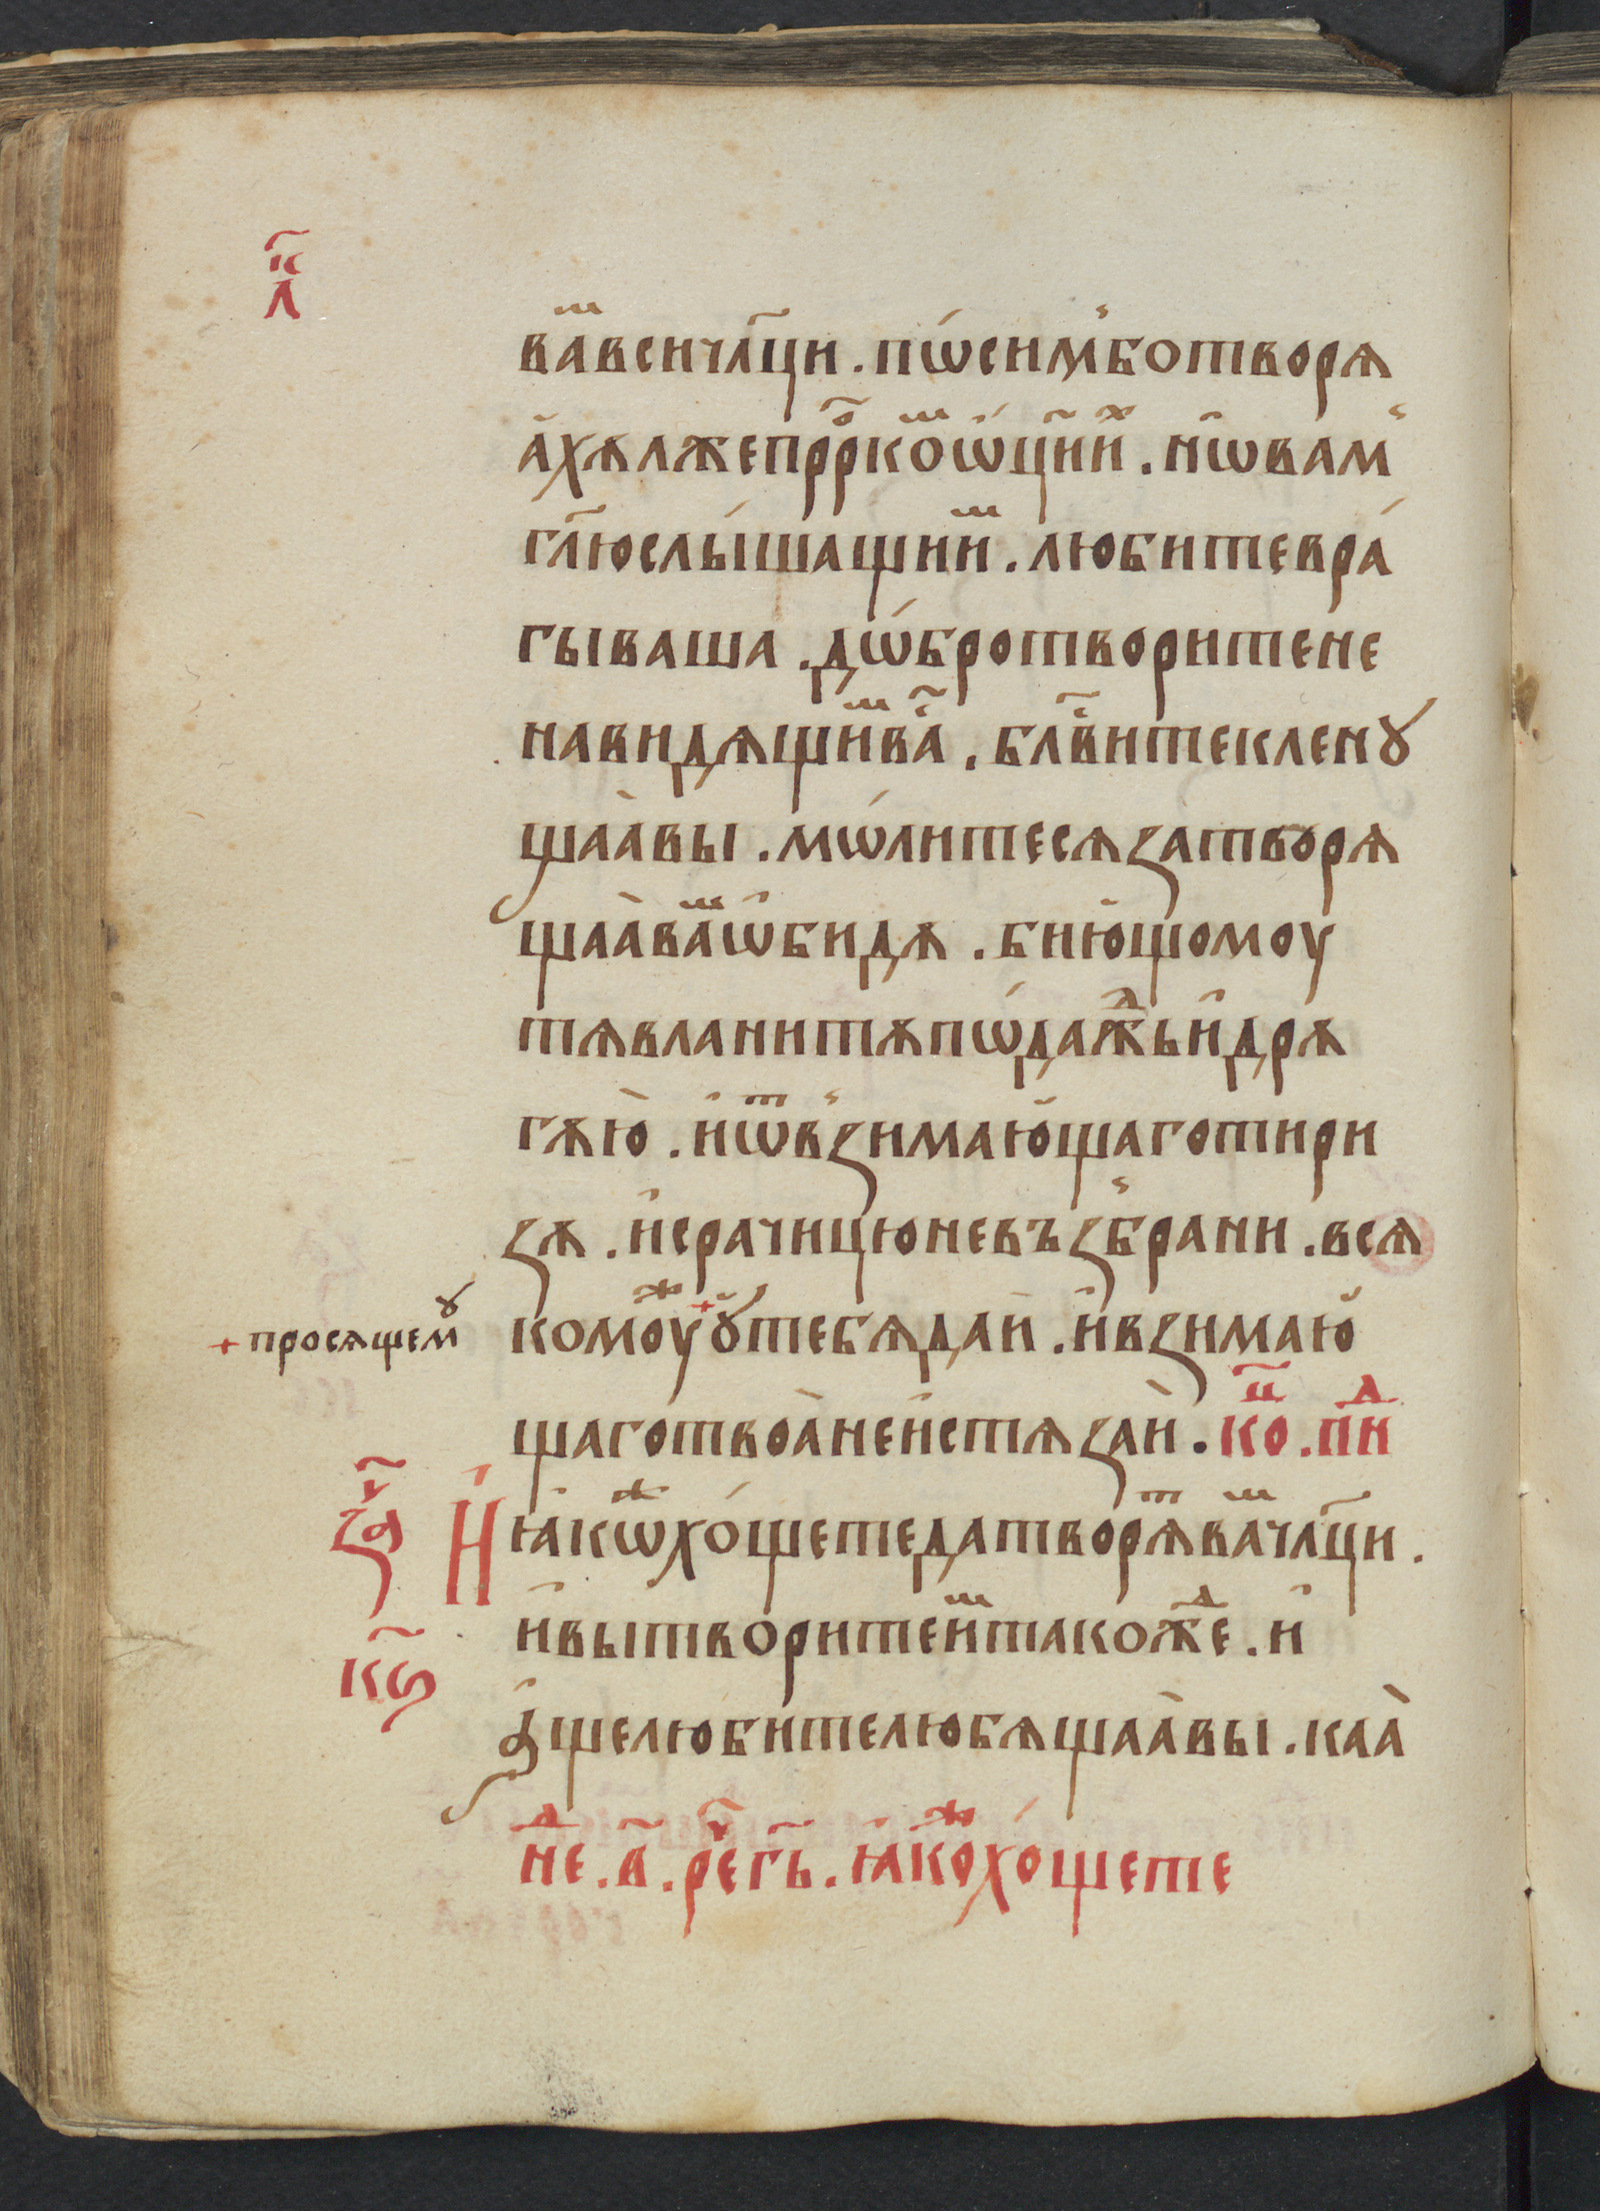 л҃к
ва̑всичл҃ци . пѡ́сим̾ботворѧ
а̑хꙋлжепрⷪ҇ркоⷨѡ́ц҃иⷯи . н̑ѡвам̾
гл҃юслы́шащиⷨи . любитевра́
гываша . дѡ́бротворитене
навидѧщиⷨва҃с . блⷭ҇витеклену
щаа̀вы . мѡ́литесѧзатворѧ
щаа̀ваⷨѡ̑бидꙋ . бию̑щомоу
тѧвланитѧпѡ́даⷤьи̑дрꙋ
гꙋю̀ . и̑ѿв̾зимаю̑щаготири
зꙋ . и̑срачицюневъз̾брани . всѧ
комоуⷤ+ꙋтебѧдаи̑ . и̑взимаю̑
+ просѧщемꙋ
щаготвоа̀неи̑стѧзаѝ . коⷰ . пнⷣ
заⷱ Ииа̑кѡⷤхо́щетедатворѧⷮваⷨчл҃ци .
и̑вытворитеи̑ⷨтакоⷤе . и̑
к҃ѕ
а̑щелюбителюбѧщаа̀вы . каа̀
нⷣе . в҃ . реⷱг҃ь . ꙗ̑коⷤхо́щете